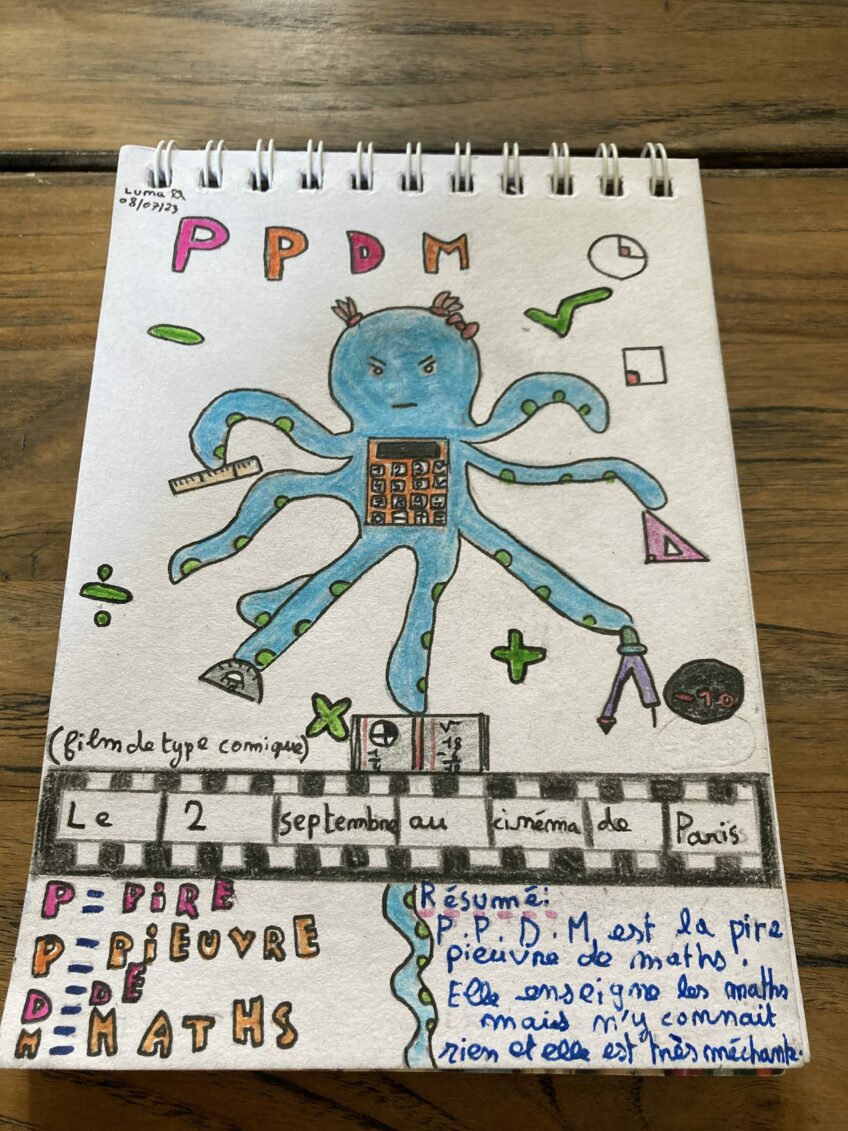 Luma
08/07/23
P P D M
(film de type comique)
√
18
-10
Le 2 septembre au cinéma de Paris
P = PiRE
P = PiEUVRE
D = DE
M = MATHS
Résumé:
P.P.D.M est la pire
pieuvre de maths.
Elle enseigne les maths
mais n'y connait
rien et elle est très méchante.